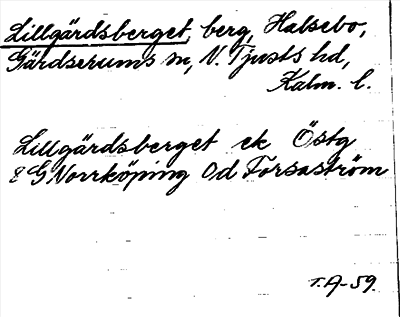 Lillgärdsberget, berg, Halsebo,
Gärdserums sn, N. Tjusts hd,
Kalm. l.
Lillgärdsberget ek Östg
8 G Norrköping Od Forsaström
T.A-59.